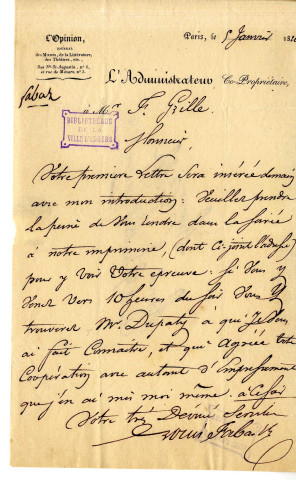 L'Opinion,
JOURNAL
des Mœurs, de la Littérature,
des Théâtres, etc.,
Rue Nve-St-Augustin, nº 8,
et rue de Ménars, nº 3.
Paris, le 5 Janvier 182
L'Administrateur Co-Propriétaire,
à Mr. F. Grille
BIBLIOTHEQUE
DE LA
VILLE D'ANGERS
Monsieur,
Votre première lettre sera insérée demain
avec mon introduction : Veuillez prendre
la peine de vous rendre dans la soirée
à notre imprimerie, (dont ci-joint l'adresse)
pour y voir Votre épreuve : si Vous y
Venez vers 10 heures du soir Vous y
trouverez Mr. Dupaty à qui je Vous
ai fait Connaître, et qui agrée votre
Coopération avec autant d'empressement
que j'en ai mis moi même. à Ce soir
Votre très Dévoué Serviteur